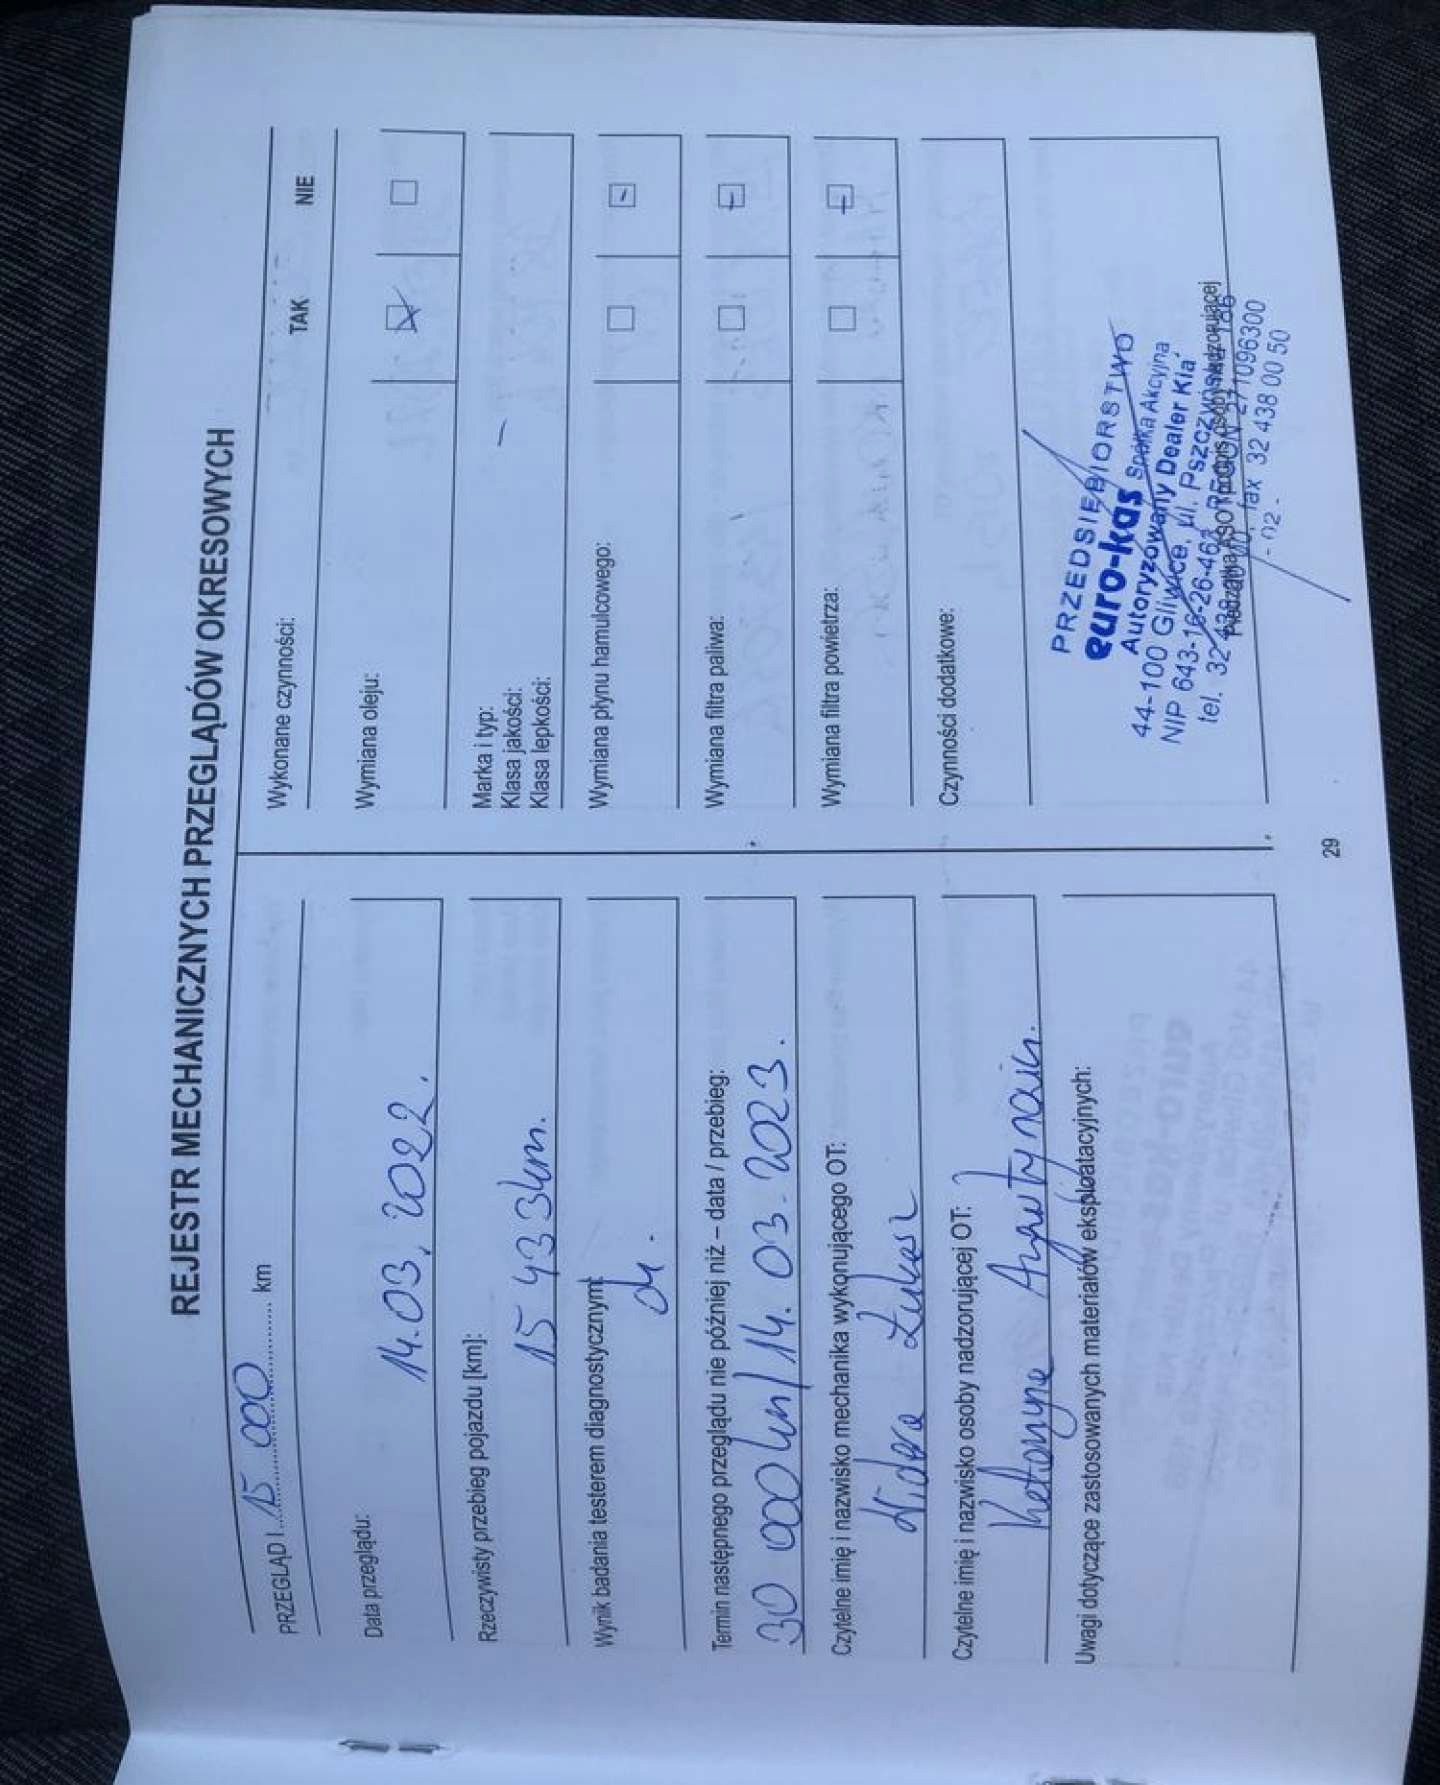 REJESTR MECHANICZNYCH PRZEGLĄDÓW OKRESOWYCH
PRZEGLĄD I 15 000 km
Data przeglądu:
14.03.2022.
Rzeczywisty przebieg pojazdu [km]:
15 433km.
Wynik badania testerem diagnostycznym:
Termin następnego przeglądu nie później niż – data / przebieg:
30 000km/14.03.2023.
Czytelne imię i nazwisko mechanika wykonującego OT:
Łukasz
Czytelne imię i nazwisko osoby nadzorującej OT:
Katarzyna
Uwagi dotyczące zastosowanych materiałów eksploatacyjnych:
Wykonane czynności:
TAK NIE
Wymiana oleju:
Marka i typ: –
Klasa jakości:
Klasa lepkości:
Wymiana płynu hamulcowego:
Wymiana filtra paliwa:
Wymiana filtra powietrza:
Czynności dodatkowe:
PRZEDSIĘBIORSTWO
euro-kas Spółka Akcyjna
Autoryzowany Dealer Kia
44-100 Gliwice, ul. Pszczyńska 186
NIP 643-16-26-463 REGON 271096300
tel. 32 438 00 00, fax 32 438 00 50
- 02 -
Pieczątka ASO i podpis osoby nadzorującej
29